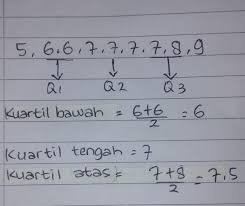 5, 6, 6, 7, 7, 7, 7, 8, 9
Q1 Q2 Q3
Kuartil bawah = 6+6/2 = 6
Kuartil tengah = 7
Kuartil atas = 7+8/2 = 7,5